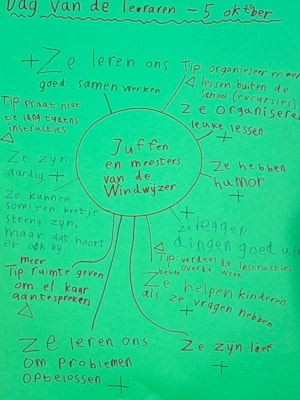 Dag van de leraren - 5 oktober
+ Ze leren ons
goed samen werken
Tip: organiseer meer
lessen buiten de
school (excursies)
Ze organiseren
leuke lessen
+
Tip: praat niet
te lang tijdens
instructies
Ze zijn
aardig +
Ze kunnen
soms een beetje
streng zijn,
maar dat hoort
er ook bij.
Juffen
en meesters
van de
Windwyzer
Ze hebben
humor +
+
Ze leggen
dingen goed uit
Tip: verdeel de instructies
beter over de week
Ze helpen kinderen
als ze vragen hebben
+
meer
Tip: ruimte geven
om elkaar
aantespreken
Ze leren ons
om problemen
optelossen +
Ze zijn lief
+